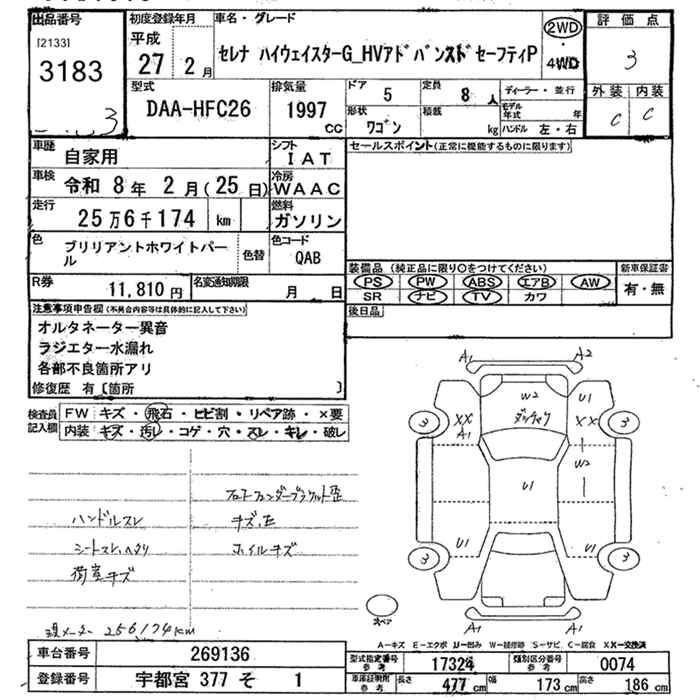 出品番号
[2133]
3183
初度登録年月
平成
27 2月
車名・グレード
セレナ ハイウェイスターG_HVアドバンスドセーフティP
2WD
・
4WD
評価点
3
外装 内装
C C
型式
DAA-HFC26
排気量
1997
cc
ドア
5
定員
8 人
形状
ワゴン
積載
kg
ディーラー・並行
モデル年式 年
ハンドル 左・右
車歴
自家用
シフト
IAT
車検
令和 8年 2月(25日)
冷房
WAAC
走行
25万6千174 km
燃料
ガソリン
色
ブリリアントホワイトパール
色替
色コード
QAB
R券
11,810円
名変通知期限
月 日
セールスポイント(正常に機能するものに限ります)
装備品(純正品に限り○をつけてください)
PS PW ABS エアB AW
SR ナビ TV カワ
新車保証書
有・無
後日品
注意事項申告欄(不具合内容等は具体的に記入して下さい)
オルタネーター異音
ラジエター水漏れ
各部不良箇所アリ
修復歴 有〔箇所 〕
検査員記入欄
FW キズ・飛石・ヒビ割・リペア跡・×要
内装 キズ・汚レ・コゲ・穴・スレ・キレ・破レ
ハンドルスレ
シートスレ、ヘタリ
荷室キズ
キズ、E
ホイルキズ
現メーター 256174km
A1 A2
W2
U1
XX
A1
XX
W2
U1
U1 U1
3 3
3 3
A1 A1
スペア
A-キズ E-エクボ U-凹み W-補修跡 S-サビ C-腐食 XX-交換済
車台番号
269136
登録番号
宇都宮 377 そ 1
型式指定番号
参考
17324
類別区分番号
参考
0074
車庫証明用
参考
長さ 477cm 幅 173cm 高さ 186cm